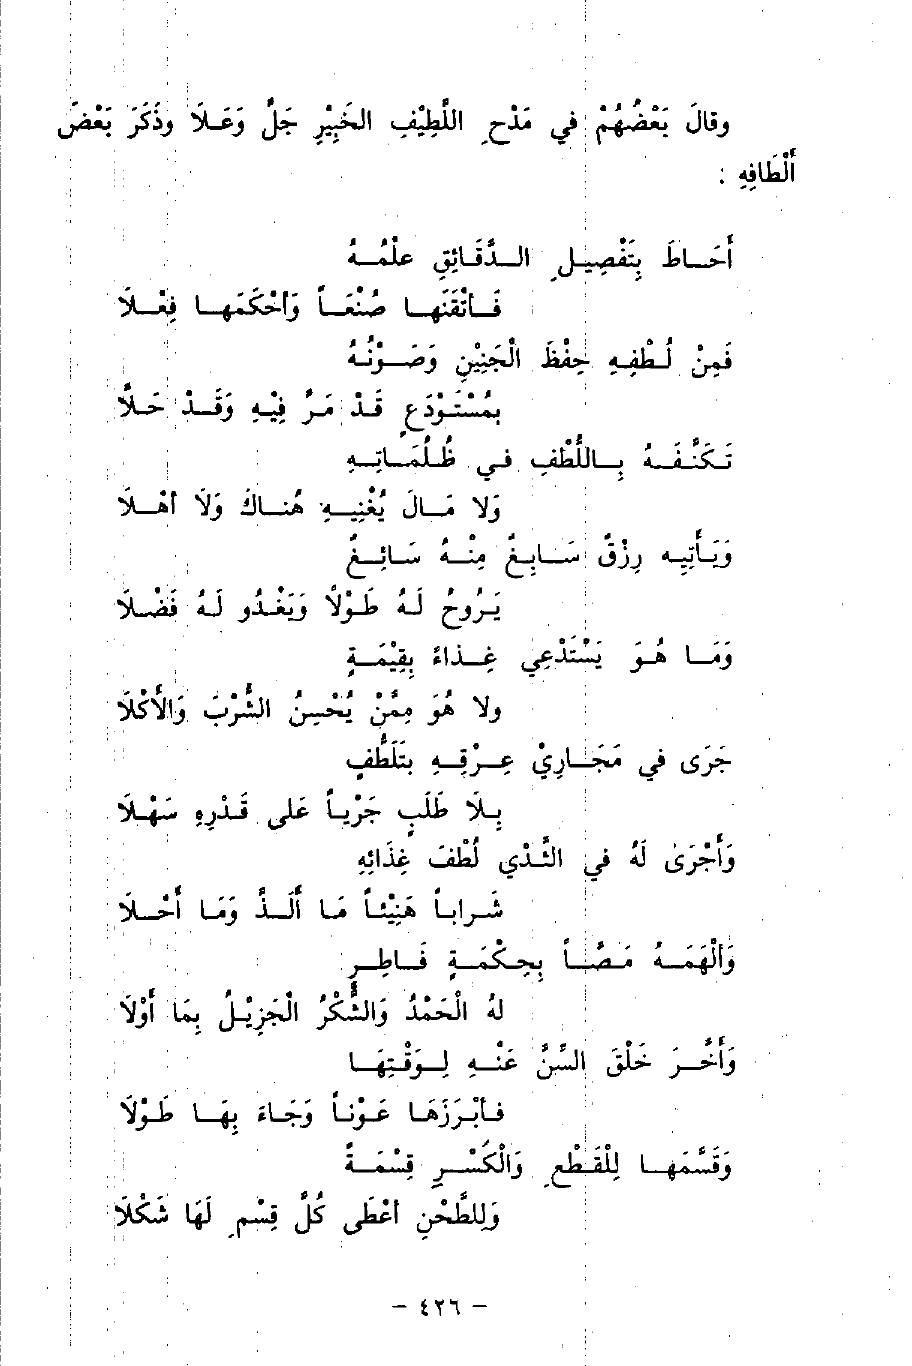 وقالَ بَعْضُهُمْ في مَدْحِ اللَّطِيْفِ الخَبِيْرِ جَلَّ وَعَلاَ وذَكَرَ بَعْضَ
أَلْطَافِهِ :
أَحَاطَ بِتَفْصِيلِ الدَّقَائِقِ عِلْمُهُ
فَأتْقَنَهَا صُنْعَاً وَأحْكَمَهَا فِعْلَا
فَمِنْ لُطْفِهِ حِفْظَ الْجَنِيْنِ وَصَوْنُهُ
بِمُسْتَوْدَعٍ قَدْ مَرَّ فِيْهِ وَقَدْ حَلَّا
تَكَنُّفَهُ بِاللُّطْفِ في ظُلُمَاتِهِ
وَلا مَالَ يُغْنِيهِ هُنَاكَ وَلَا أهْلَا
وَيَأتِيهِ رِزْقٌ سَابِغٌ مِنْهُ سَائِغٌ
يَرُوحُ لَهُ طَوْلاً وَيَغْدُو لَهُ فَضْلَا
وَمَا هُوَ يَسْتَدْعِي غِذاءً بِقِيْمَةٍ
ولا هُوَ مِمَّنْ يُحْسِنُ الشُّرْبَ وَالأَكْلَا
جَرَى في مَجَارِيْ عِرْقِهِ بِتَلَطُّفٍ
بِلَا طَلَبٍ جَرْياً عَلى قَدْرِهِ سَهْلَا
وَأَجْرَىٰ لَهُ في الثَّدْيِ لُطْفَ غِذَائِهِ
شَراباً هَنِيْئاً مَا أَلَذَّ وَمَا أَحْلَا
وَألْهَمَهُ مَصَّاً بِحِكْمَةِ فَاطِرٍ
لهُ الْحَمْدُ وَالشُّكْرُ الْجَزِيْلُ بِمَا أَوْلَا
وَأَخَّرَ خَلْقَ السِّنِّ عَنْهِ لِوَقْتِهَا
فَأبْرَزَهَا عَوْناً وَجَاءَ بِهَا طَوْلَا
وَقَسَّمَهَا لِلْقَطْعِ وَالْكَسْرِ قِسْمَةً
وَلِلطَّحْنِ أعْطَى كُلَّ قِسْمٍ لَهَا شَكْلَا
– ٤٢٦ –